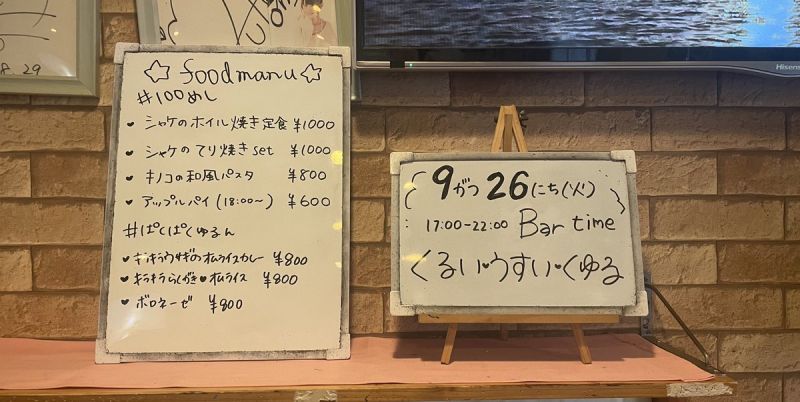 8.29
Hisense
☆ foodmanu ☆
#100めし
♥ シャケのホイル焼き定食 ¥1000
♥ シャケのてり焼きset ¥1000
♥ キノコの和風パスタ ¥800
♥ アップルパイ (18:00〜) ¥600
#ぱくぱくゆるん
♥ キラキラウサギのオムライスカレー ¥800
♥ キラキラらくがき♥オムライス ¥800
♥ ボロネーゼ ¥800
9がつ26にち(火)
17:00-22:00 Bar time
くるい♥うすい♥くゆる